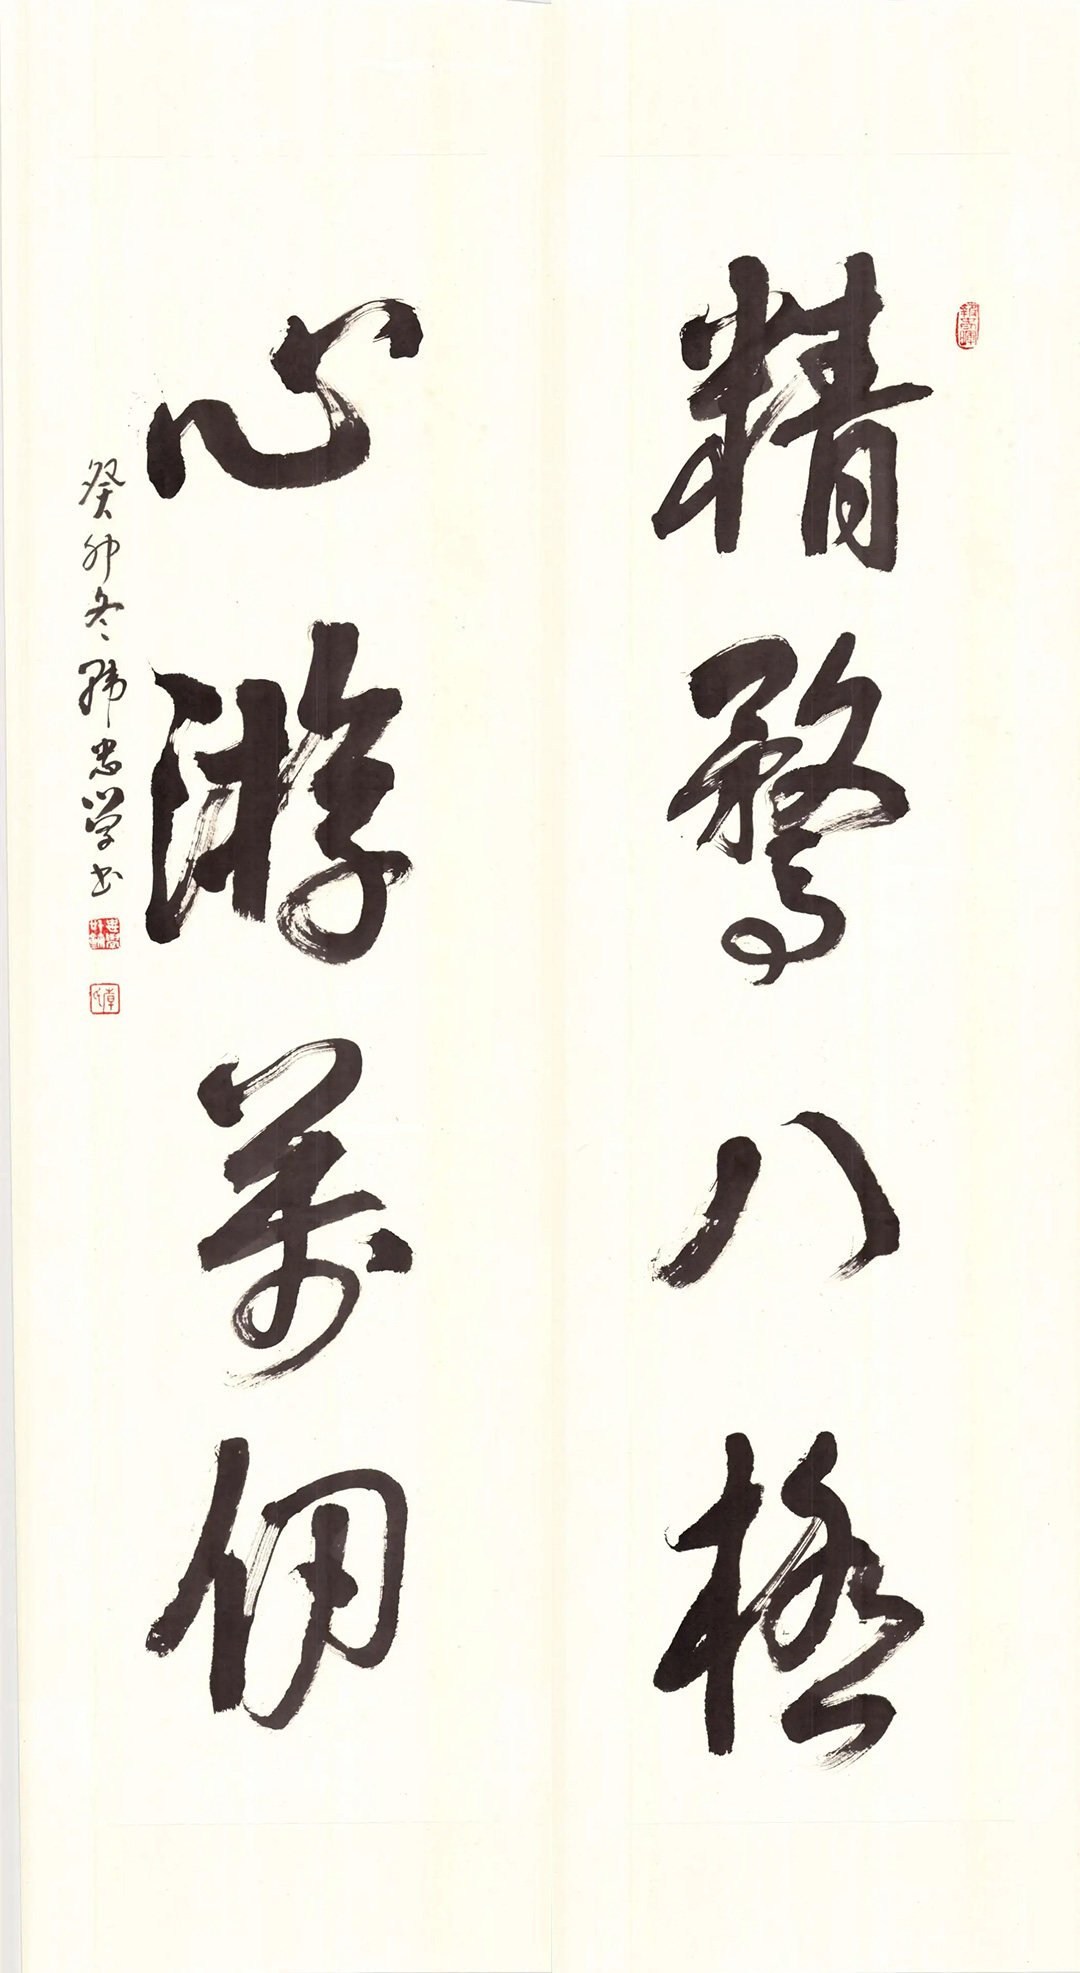 精騖八極
心游萬仞
癸卯冬韩忠学书